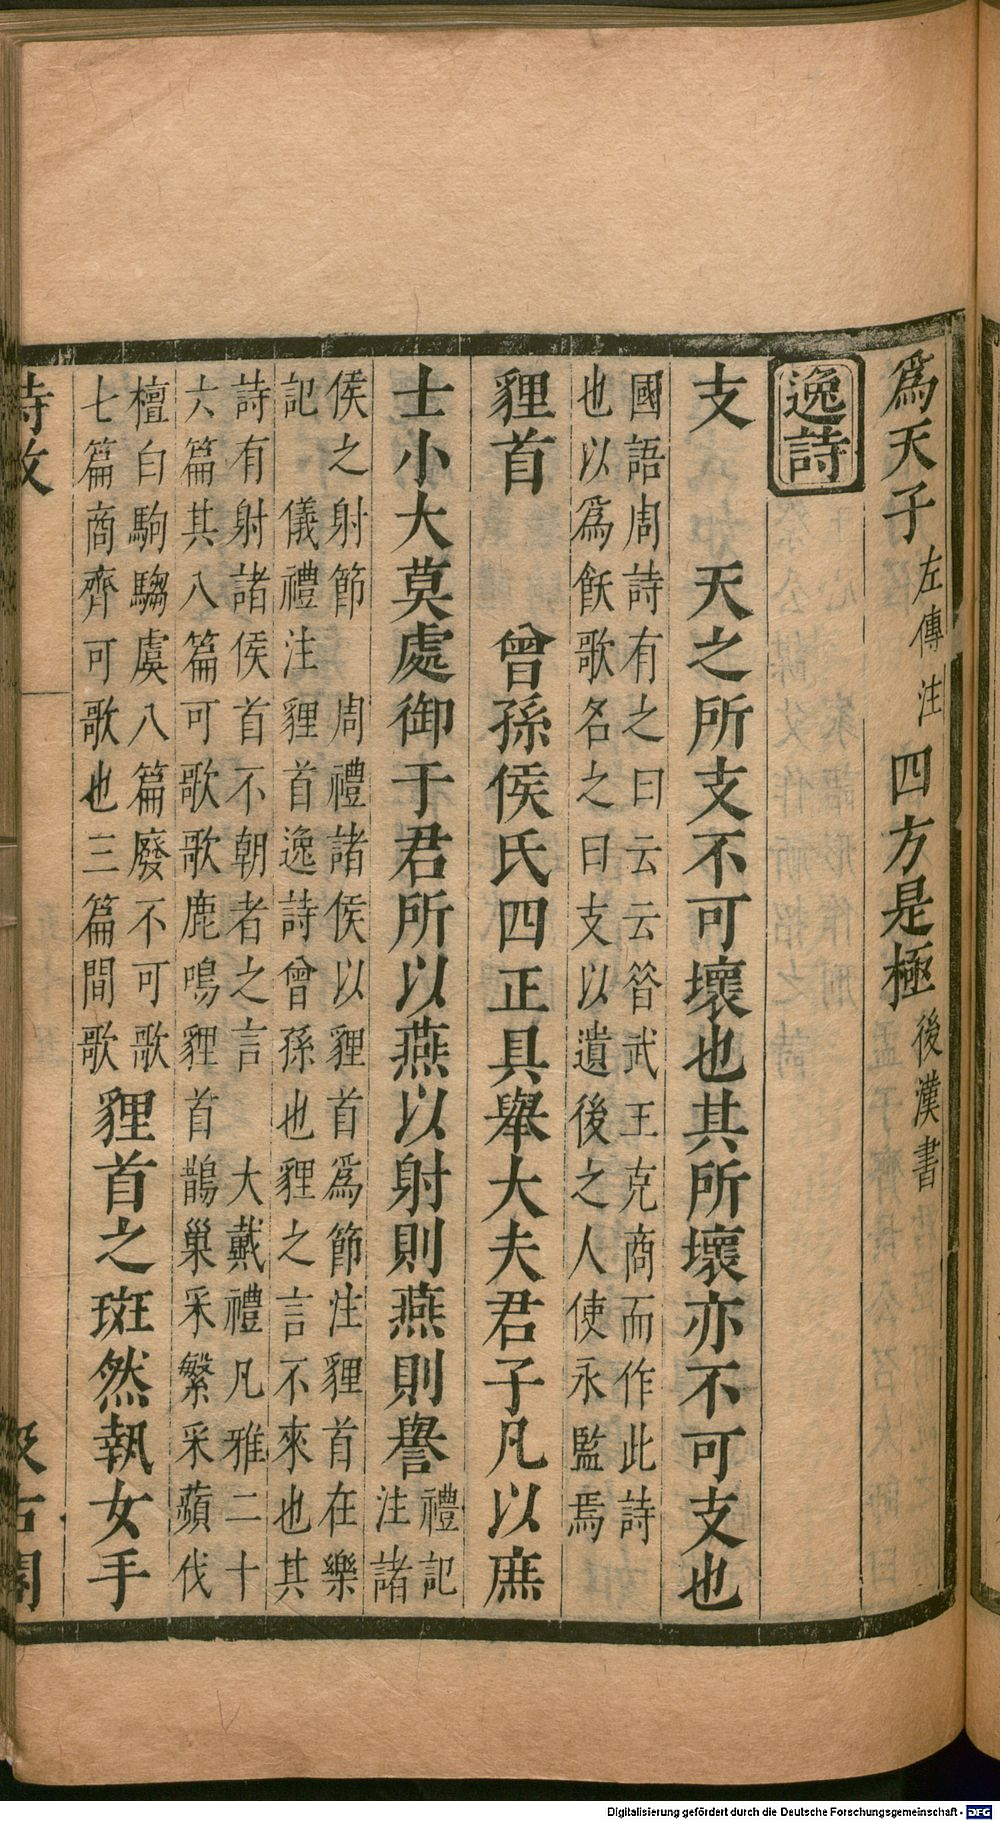 爲天子左傳注四方是極後漢書
逸詩
支　天之所支不可壞也其所壞亦不可支也
國語周詩有之曰云云昝武王克商而作此詩
也以爲飫歌名之曰支以遺後之人使永監焉
貍首　曾孫侯氏四正具舉大夫君子凡以庶
士小大莫處御于君所以燕以射則燕則譽禮記
注諸
侯之射節　周禮諸侯以貍首爲節注貍首在樂
記　儀禮注貍首逸詩曾孫也貍之言不來也其
詩有射諸侯首不朝者之言　大戴禮凡雅二十
六篇其八篇可歌歌鹿鳴貍首鵲巢采繁采蘋伐
檀白駒騶虞八篇廢不可歌
七篇商齊可歌也三篇間歌
貍首之斑然執女手
詩攷
汲古閣
Digitalisierung gefördert durch die Deutsche Forschungsgemeinschaft - DFG